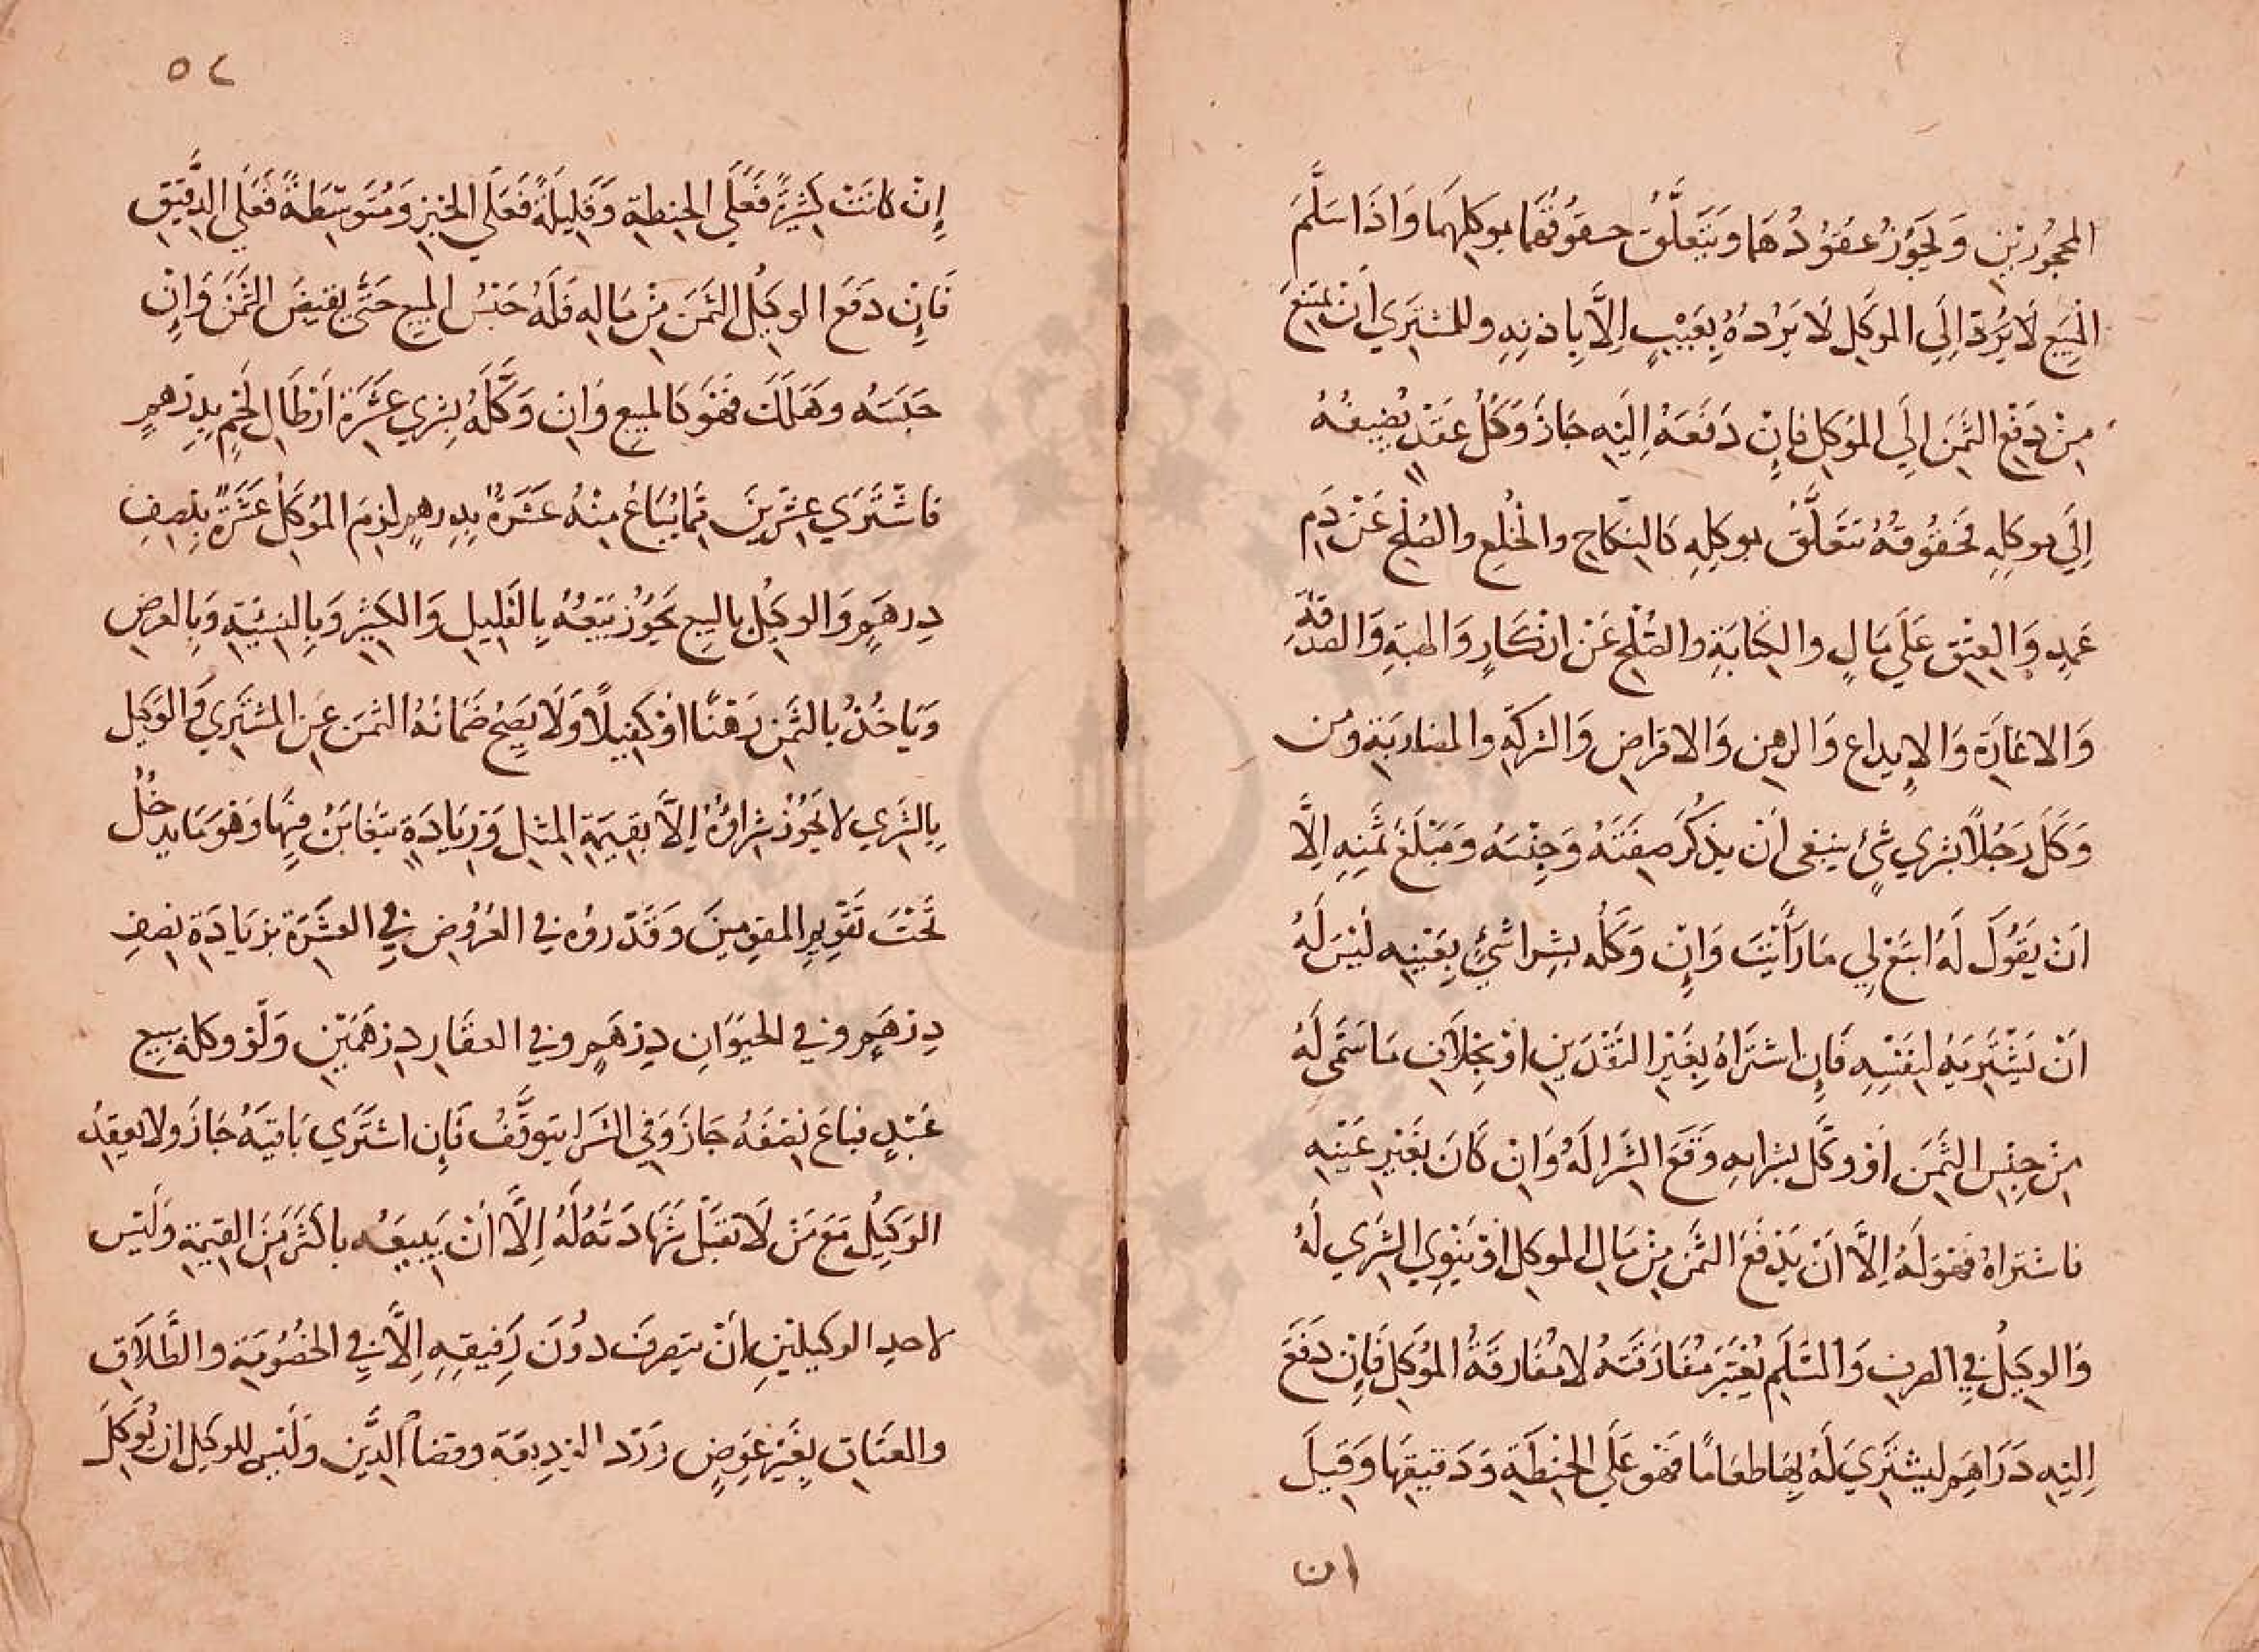 المحجُورَيْنِ وَيَجُوزُ عُقُوُدُهُمَا وَيَتَعَلَّقُ حقوقُهُمَا بموكلِهِمَا وَاذَا سَلَّمَ
المَبِيع لَا يَرُدّ اِلَي الموَكِلِ لَا يَرُدهُ بِعَيْبٍ اِلَّا باذنِهِ وللمشتَرِي أَنْ يَمتَنعَ
مِنْ دَفْعِ الثَّمَنِ اِلَي المُوَكِلِ فَاِنْ دَفَعَهُ اِليَهِ جَازَ وَكُلُّ عَقدٍ يُضِيفُهُ
اِلَي موكِلِهِ فحُقُوُقهُ تتَعَلَّقُ بموكِلِهِ كَالنِكَاحِ والخُلعِ والصُلحِ عَنْ دَمِ
عَمدٍ وَالعِتْقِ عَلَي مَالٍ والكِتَابَةِ والصُلْحِ عَنْ انْكَارٍ وَالهبَةِ وَالصَدَقَةِ
وَالاعَارَةِ وَالاِيدِاعِ وَالرهنِ وَالاقراضِ وَالشركةِ والمضاربَةِ ومن
وَكَلَ رَجُلاً بشري شَيٍء ينبغى أنْ يذكُرَ صِفَتَهُ وَجِنْسَهُ وَمَبْلَغَ ثمَنِهِ اِلَّا
انْ يَقُولَ لَهُ ابتَعْ لِي مَا رَأَيْتَ وَاِن وَكَلَهُ بشِرا شَيٍء بِعَيْنِهِ لَيْسَ لَهُ
انْ يَشْتَرِيَهُ لنفسِهِ فَاِن اشتَرَاهُ بِغَيْرِ النَقْدَينِ اوْ بخِلَافِ مَا سَمَّى لَهُ
مِنْ جِنْسِ الثَمَنِ اَوْ وكَّل بشرايهِ وَقَعَ الشِرا لَهُ وَانْ كَانَ بغَيْرِ عَيْنِهِ
فاشتراهُ فَهُوَ لَهُ اِلَّا اَنْ يَدْفَعَ الثَمَنَ مِنْ مَالِ الموكِلِ اوْ يَنوِيَ الشِرَي لَهُ
وَالوكِيلُ فِي الصرفِ وَالسَلَمِ يُعْتَبَرُ مُفَارَقتهُ لا مُفَارقَةُ المُوَكِلِ فَاِن دَفَعَ
اِليْهِ دَرَاهِمَ لِيشتَرِيَ لَهُ بِهَا طعَامًا فَهُو عَلَي الحِنطَةِ وَدَقيقِهَا وَقيلَ
ان
٥٢
إنْ كانَتْ كثِيرَةً فَعَلَي الحنِطَةِ وَقَلِيلَةً فَعَلَي الخُبزِ وَمُتَوسِّطَةً فَعَلَي الدَّقيقِ
فَاِن دَفَعَ الوكِيلُ الثَمَنَ مِنْ مَالِهِ فَلَهُ حَبْسُ المبيع حَتَّى يقبضَ الثمَنَ وَاِنْ
حَبَسَهُ وهَلَكَ فَهُوَ كَالمبيعِ وَان وَكَّلَهُ بِشري عَشَرَة ارْطَالِ لَحْمٍ بِدِرهمٍ
فَاشْتَرَي عِشْرِينَ مِمَّا يُبَاعُ مِنْهُ عَشَرَةٌ بِدِرهمٍ لزِمَ المُوكِلَ عَشَرَةٌ بِنِصفِ
دِرهَمٍ وَالوكِيلُ بالبيع يَجُوزُ بَيْعُهُ بِالقَلِيلِ وَالكَثِيرِ وَبِالنَسِيَةِ وَبِالعرضِ
وَيَاخُذُ بالثَمَنِ رَهْنًا اوْ كَفِيلاً وَلَا يَصِحُ ضَمَانُهُ الثمَنَ عَنِ المشتَرِي وَالوَكِيل
بِالشِرَي لا يَجُوُزُ شرَاؤُهُ اِلَّا بقيمَةِ المِثلِ وَزيَادَةٍ يتَغَابَنُ فِيهَا وَهُوَ مَا يدخُلُ
تَحْتَ تَقْوِيمِ المقوِمينَ وَقَدّروُه في العُرُوضِ فِي العَشَرَةِ بزيَادَةِ نصِفِ
دِرْهَمٍ وفي الحيَوَانِ دِرْهَمٍ وفي العقَارِ دِرْهَمَيْنِ وَلَوْ وكلهُ ببيع
عَبْدٍ فبَاعَ نِصْفَهُ جَازَ وَفِي الشِرَا يتوَقَّفُ فَاِن اشتَرَي بَاقيَهُ جَازَ ولا يعقِدُ
الوَكِيُلُ مَعَ مَنْ لَا تقبَلُ شَهَادَتهُ لَهُ اِلَّا أنْ يَبيعَهُ باكثَرَ مَنَ القِيمَةِ وَلَيْسَ
لاحدِ الوكيلَيْنِ أنْ يتصرفَ دوُنَ رَفِيقِهِ اِلَّا فِي الخصُوُمَةِ والطَّلَاقِ
والعتَاقِ بِغَيْرِ عِوَضٍ وَرَد الودِيعَةِ وقضاء الدَّين وَلَيْسَ للوكيل ان يُوكِلَ